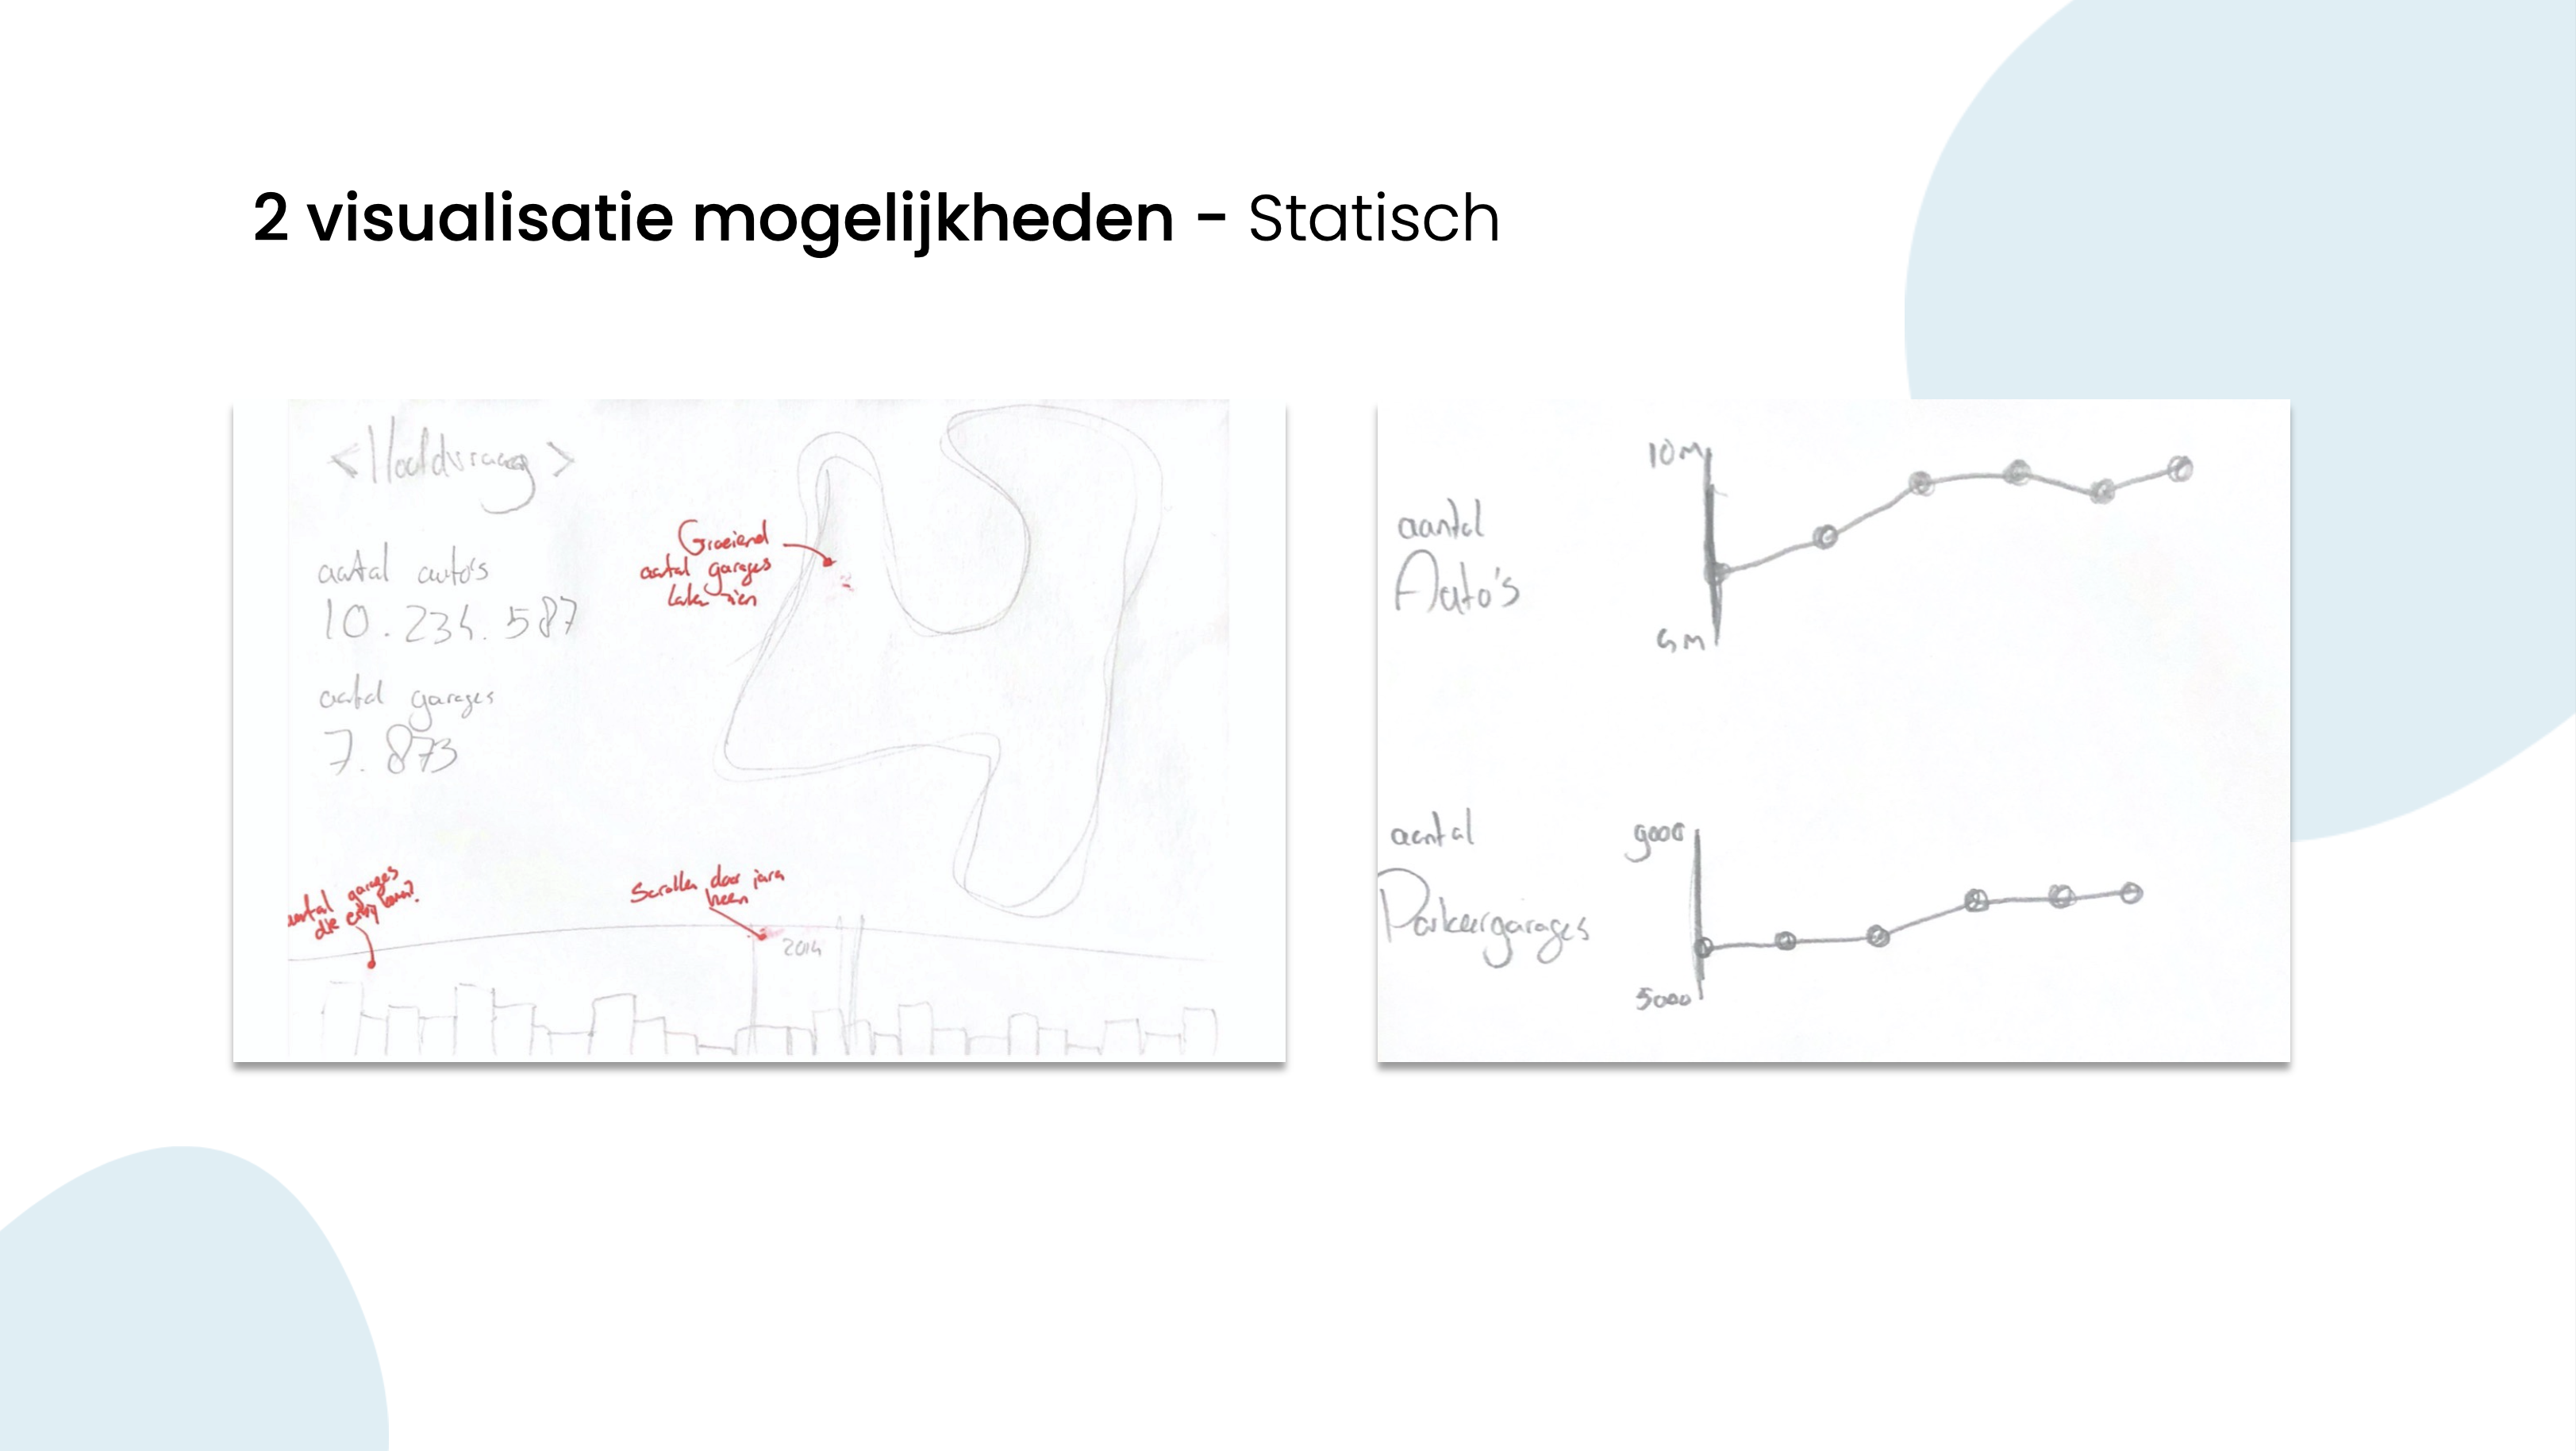 2 visualisatie mogelijkheden - Statisch
<Hoofdvraag>
aantal auto's
10.234.587
aantal garages
7.873
Groeiend
aantal garages
laten zien
aantal garages
die erbij
Scrollen door jaren
heen
2014
aantal
Auto's
10M
5M
aantal
Parkeergarages
9000
5000